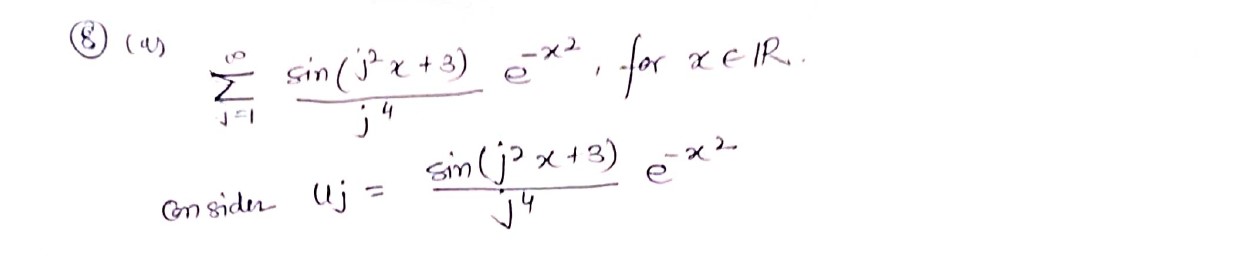 ⑧ (a) ∞Σj=1 sin(j²x+3)/j⁴ e^-x², for x ∈ ℝ.
Consider Uj = sin(j²x+3)/j⁴ e^-x²